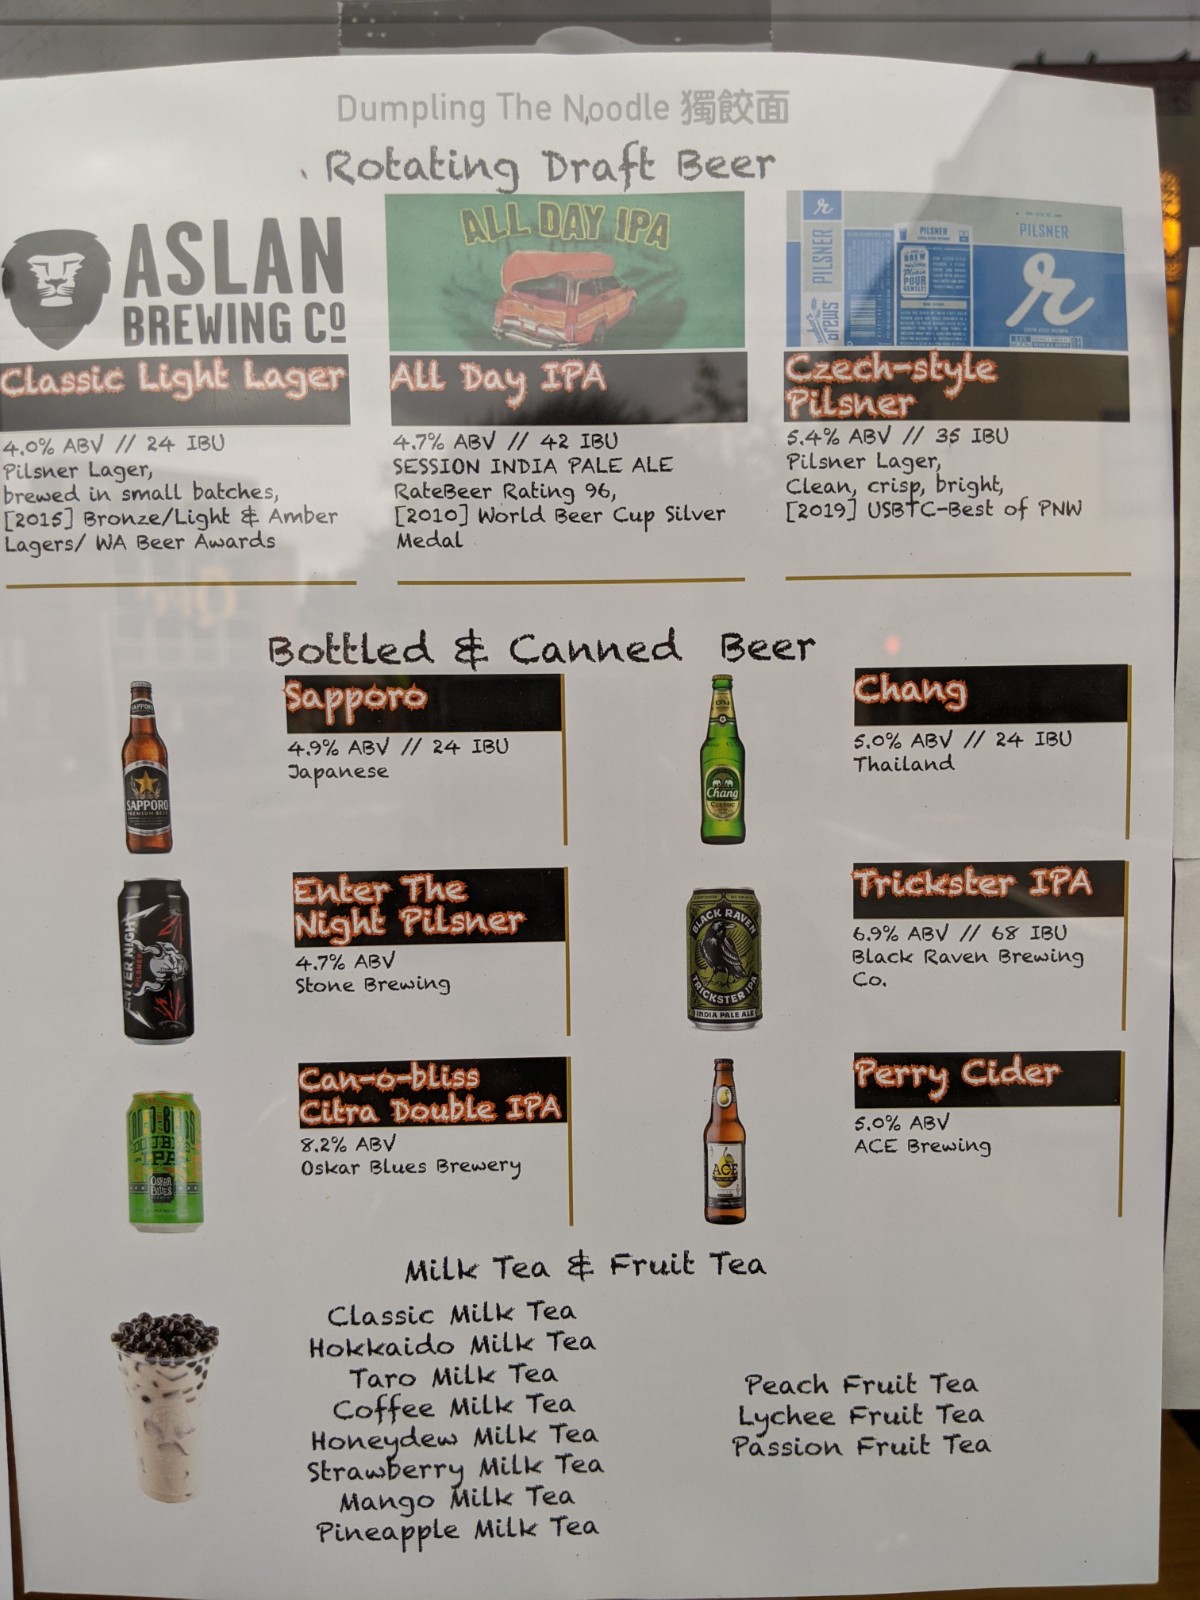 Dumpling The Noodle 獨餃面
Rotating Draft Beer
ASLAN
BREWING CO
Classic Light Lager
4.0% ABV // 24 IBU
Pilsner Lager,
brewed in small batches,
[2015] Bronze/Light & Amber
Lagers/ WA Beer Awards
ALL DAY IPA
All Day IPA
4.7% ABV // 42 IBU
SESSION INDIA PALE ALE
RateBeer Rating 96,
[2010] World Beer Cup Silver
Medal
r
PILSNER
PILSNER
PILSNER
r
BREW
POUR
Czech-style
Pilsner
5.4% ABV // 35 IBU
Pilsner Lager,
Clean, crisp, bright,
[2019] USBTC-Best of PNW
Bottled & Canned Beer
SAPPORO
SAPPORO
Sapporo
4.9% ABV // 24 IBU
Japanese
Chang
Chang
5.0% ABV // 24 IBU
Thailand
ENTER NIGHT
PILSNER
Enter The
Night Pilsner
4.7% ABV
Stone Brewing
BLACK RAVEN
TRICKSTER IPA
INDIA PALE ALE
Trickster IPA
6.9% ABV // 68 IBU
Black Raven Brewing
Co.
CAN-O-BLISS
DOUBLE
IPA
OSKAR
BLUES
Can-o-bliss
Citra Double IPA
8.2% ABV
Oskar Blues Brewery
ACE
Perry Cider
5.0% ABV
ACE Brewing
Milk Tea & Fruit Tea
Classic Milk Tea
Hokkaido Milk Tea
Taro Milk Tea
Coffee Milk Tea
Honeydew Milk Tea
Strawberry Milk Tea
Mango Milk Tea
Pineapple Milk Tea
Peach Fruit Tea
Lychee Fruit Tea
Passion Fruit Tea